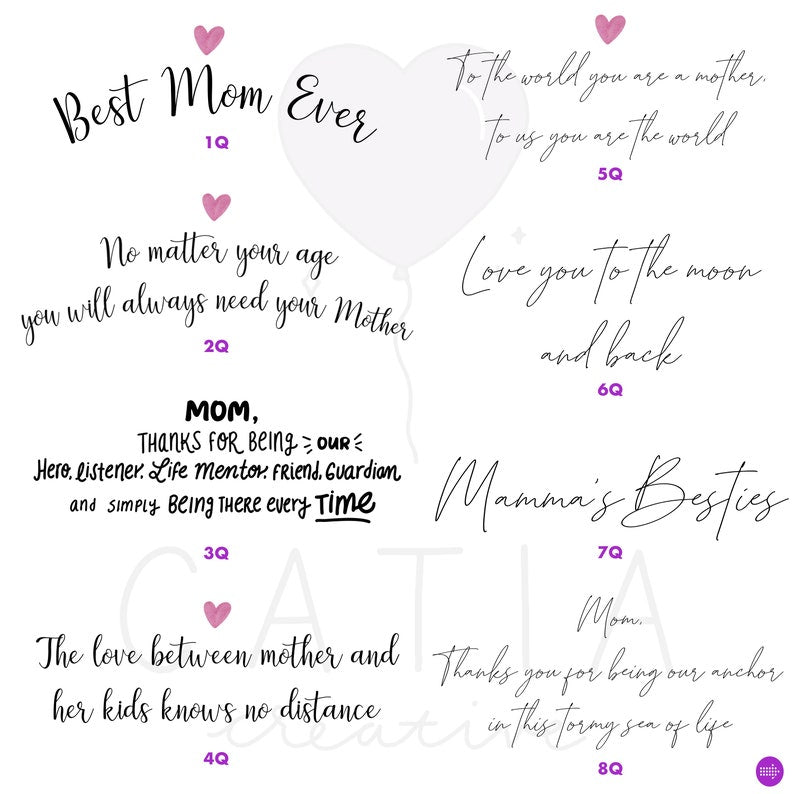 Best Mom Ever
1Q
No matter your age
you will always need your Mother
2Q
MOM,
THANKS FOR BEING OUR
Hero, listener, Life Mentor, Friend, Guardian
and simply BEING THERE every TIME
3Q
The love between mother and
her kids knows no distance
4Q
To the world you are a mother,
to us you are the world
5Q
Love you to the moon
and back
6Q
Mamma's Besties
7Q
Mom,
Thanks you for being our anchor
in this tormy sea of life
8Q
CATIA
creative